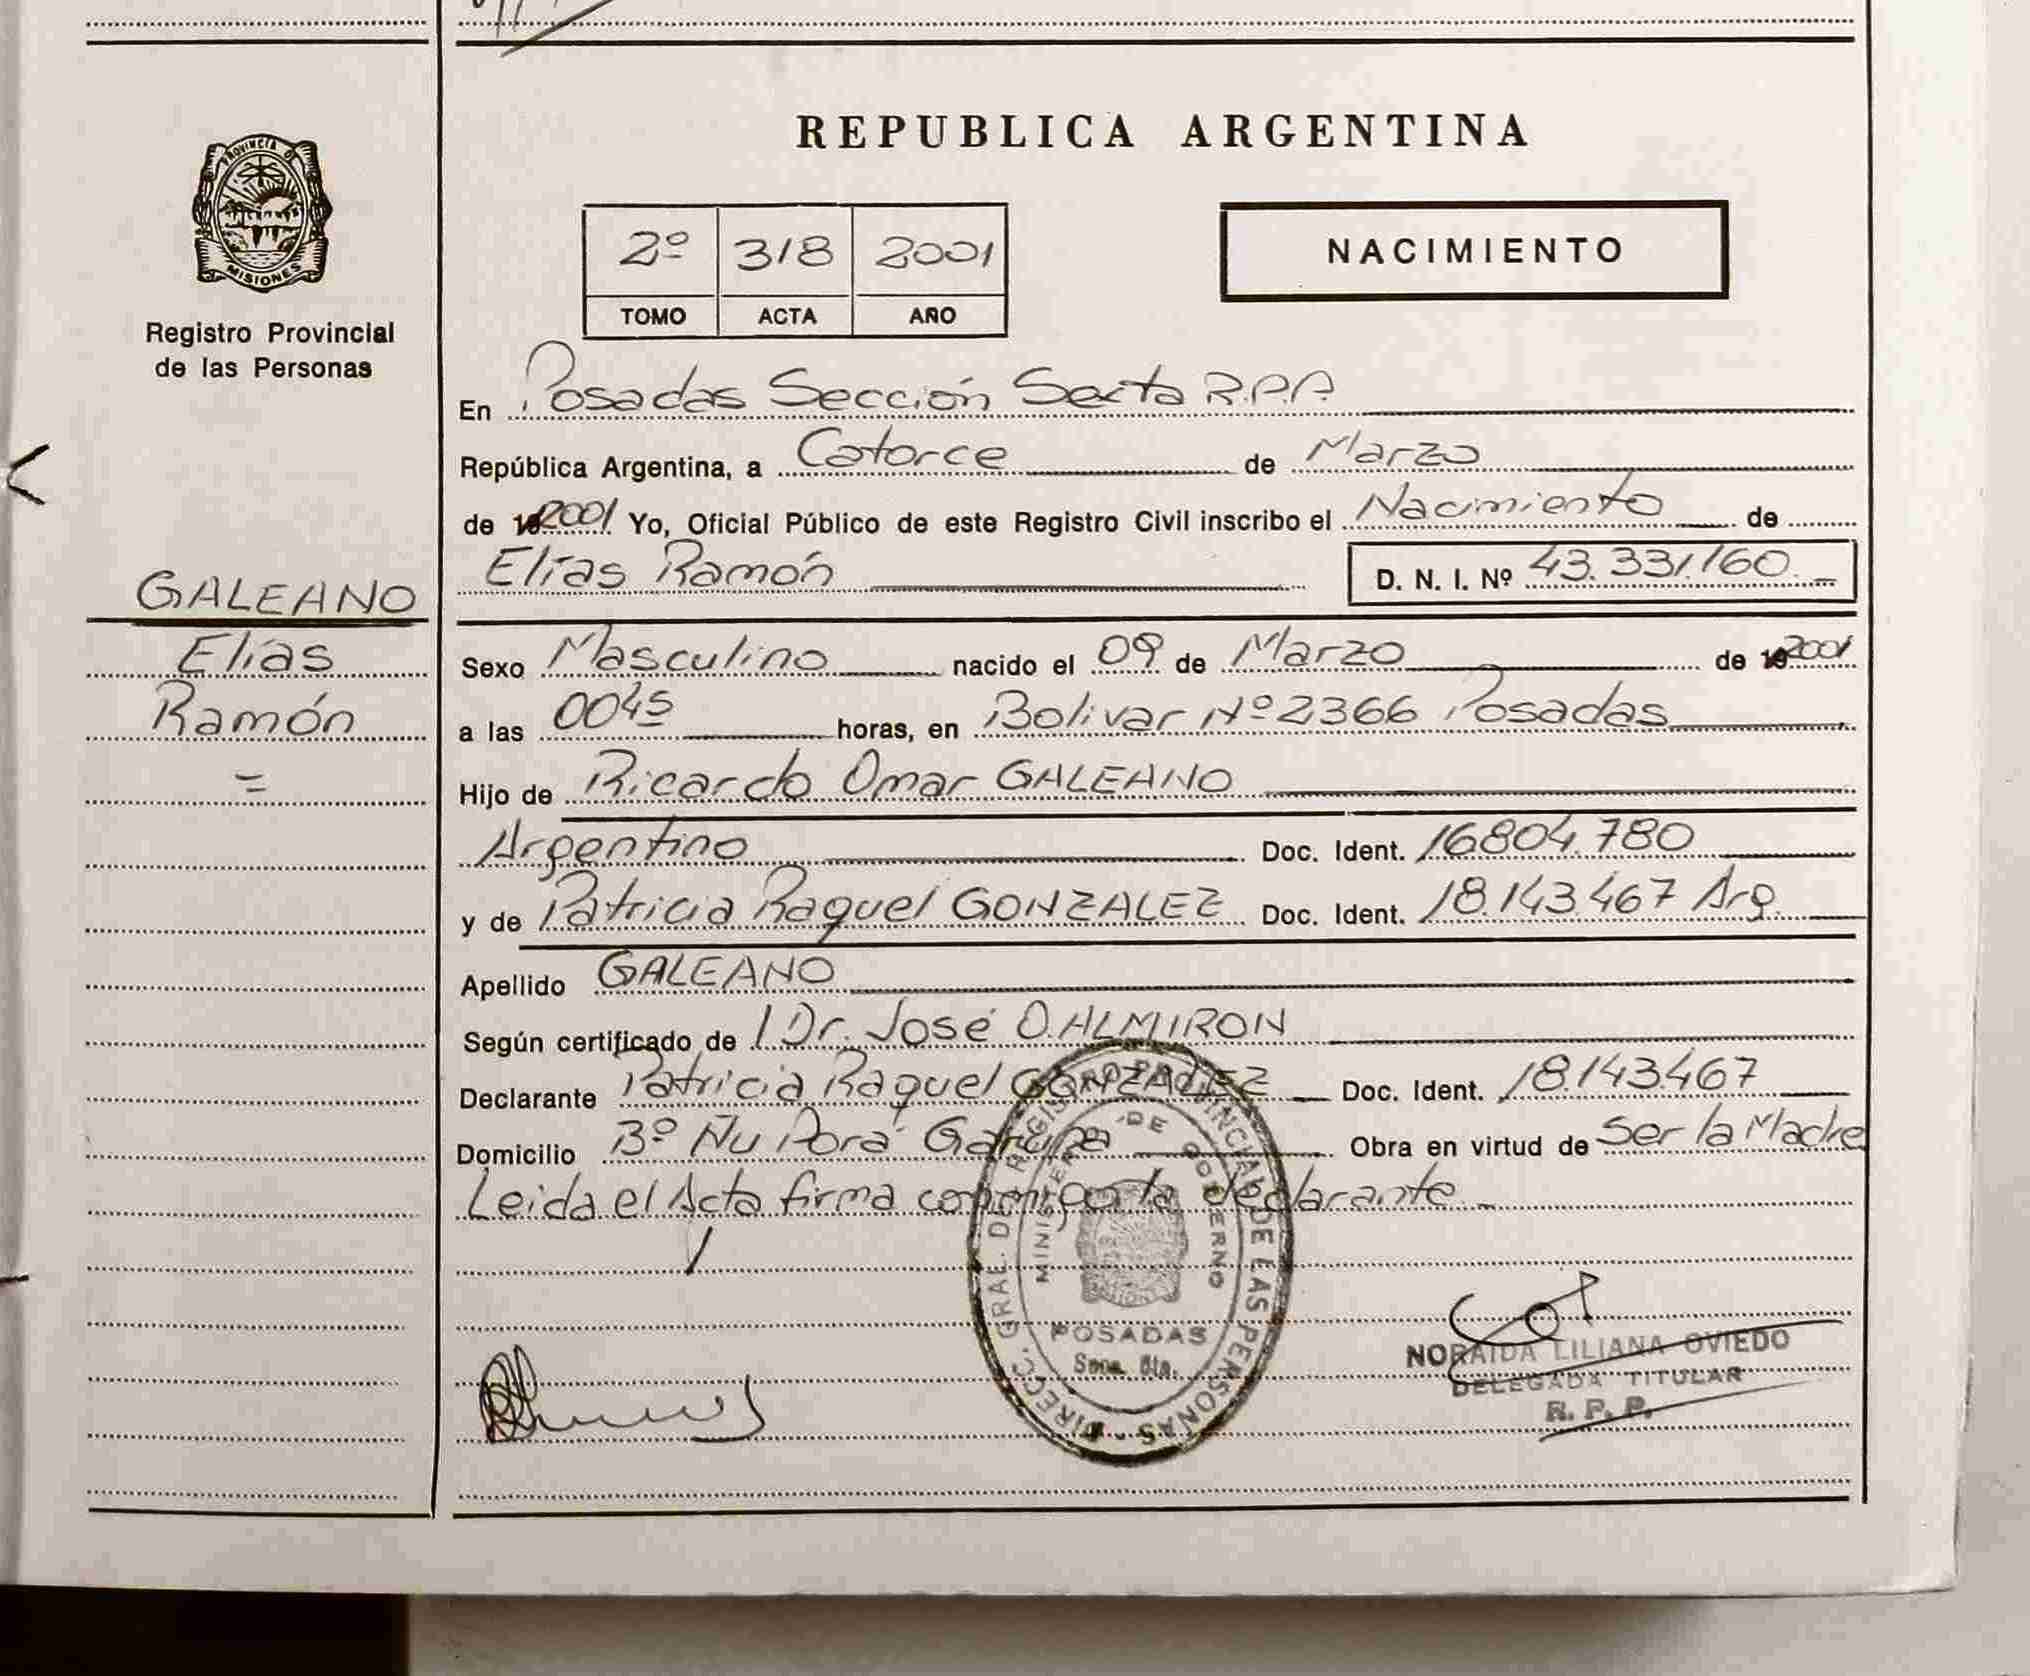 REPUBLICA ARGENTINA
PROVINCIA DE
MISIONES
Registro Provincial
de las Personas
2º 318 2001
TOMO ACTA AÑO
NACIMIENTO
En Posadas Sección Sexta R.P.P.
República Argentina, a Catorce de Marzo
de 2001 Yo, Oficial Público de este Registro Civil inscribo el Nacimiento de
Elías Ramón D. N. I. Nº 43.331.160.
GALEANO
Elías
Ramón
=
Sexo Masculino nacido el 09 de Marzo de 2001
a las 0045 horas, en Bolivar Nº 2366 Posadas
Hijo de Ricardo Omar GALEANO
Argentino Doc. Ident. 16804.780
y de Patricia Raquel GONZALEZ Doc. Ident. 18.143.467 Arg.
Apellido GALEANO
Según certificado de Dr. José O. ALMIRON
Declarante Patricia Raquel GONZALEZ Doc. Ident. 18.143.467
Domicilio Bº Ñu Porá Garupá Obra en virtud de Ser la Madre
Leida el Acta firma conmigo la declarante
DIRECC. GRAL. DEL REGISTRO PROVINCIAL DE LAS PERSONAS
MINISTERIO DE GOBIERNO
POSADAS
Scna. 6ta.
NORAIDA LILIANA OVIEDO
DELEGADA TITULAR
R. P. P.